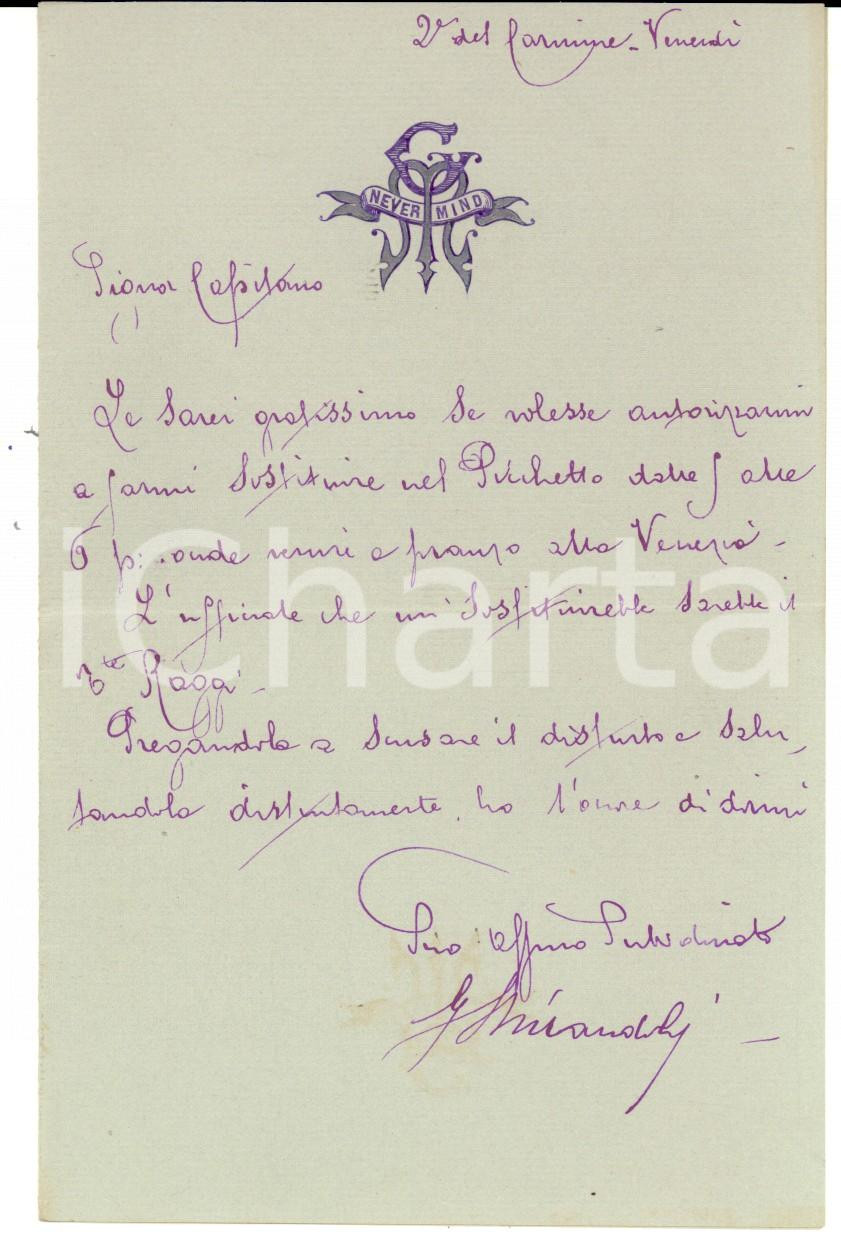 Q.re del Carmine - Venerdì
NEVER MIND
Signor Capitano
Le sarei gratissimo se volesse autorizzarmi
a farmi sostituire nel Picchetto dalle 5 alle
6 p: onde venire a pranzo alla Venezia -
L'ufficiale che mi sostituirebbe sarebbe il
T.te Raggi -
Pregandola a scusare il disturbo e salu-
tandola distintamente, ho l'onore di dirmi
Suo affmo Subordinato
G Mirandoli -
iCharta